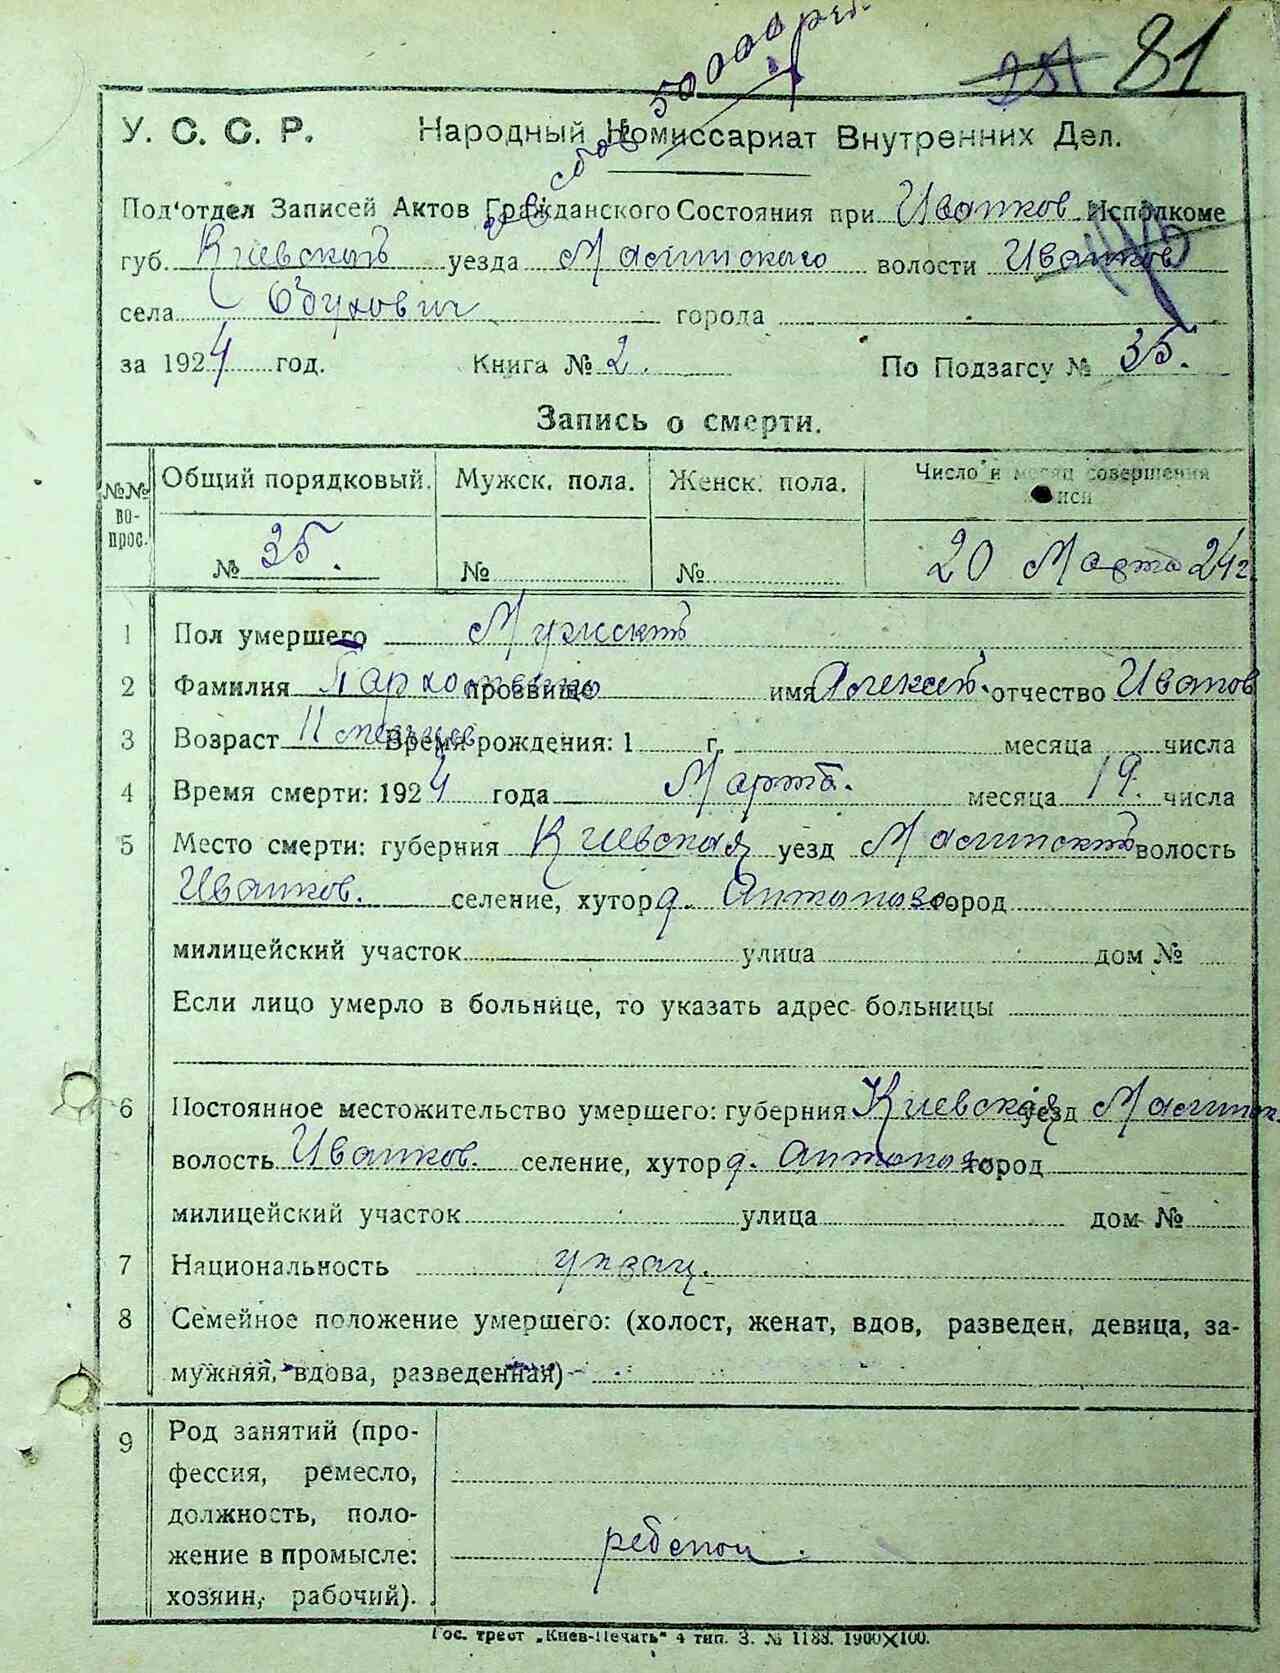 50000 рб.
251 81
У. С. С. Р. Народный Комиссариат Внутренних Дел.
Под'отдел Записей Актов Гражданского Состояния при Иванков Исполкоме
губ. Киевской уезда Малинского волости Иванков
села Обухович города
за 1924 год. Книга № 2. По Подзагсу № 35.
Запись о смерти.
№№ во-прос. Общий порядковый. Мужск. пола. Женск. пола. Число и месяц совершения
иси
№ 35. № № 20 Марта 24 г.
1 Пол умершего Мужской
2 Фамилия Пархоменко прозвище имя Алексей отчество Иванов
3 Возраст 11 месяцев Время рождения: 1 г. месяца числа
4 Время смерти: 1924 года Марта. месяца 19. числа
5 Место смерти: губерния Киевская уезд Малинский волость
Иванков. селение, хутор д. город
милицейский участок улица дом №
Если лицо умерло в больнице, то указать адрес больницы
6 Постоянное местожительство умершего: губерния Киевская уезд Малин
волость Иванков. селение, хутор д. город
милицейский участок улица дом №
7 Национальность
8 Семейное положение умершего: (холост, женат, вдов, разведен, девица, за-
мужняя, вдова, разведенная)
9 Род занятий (про-
фессия, ремесло,
должность, поло-
жение в промысле: ребенок.
хозяин, рабочий).
Гос. трест „Киев-Печать" 4 тип. З. № 1188. 1900X100.